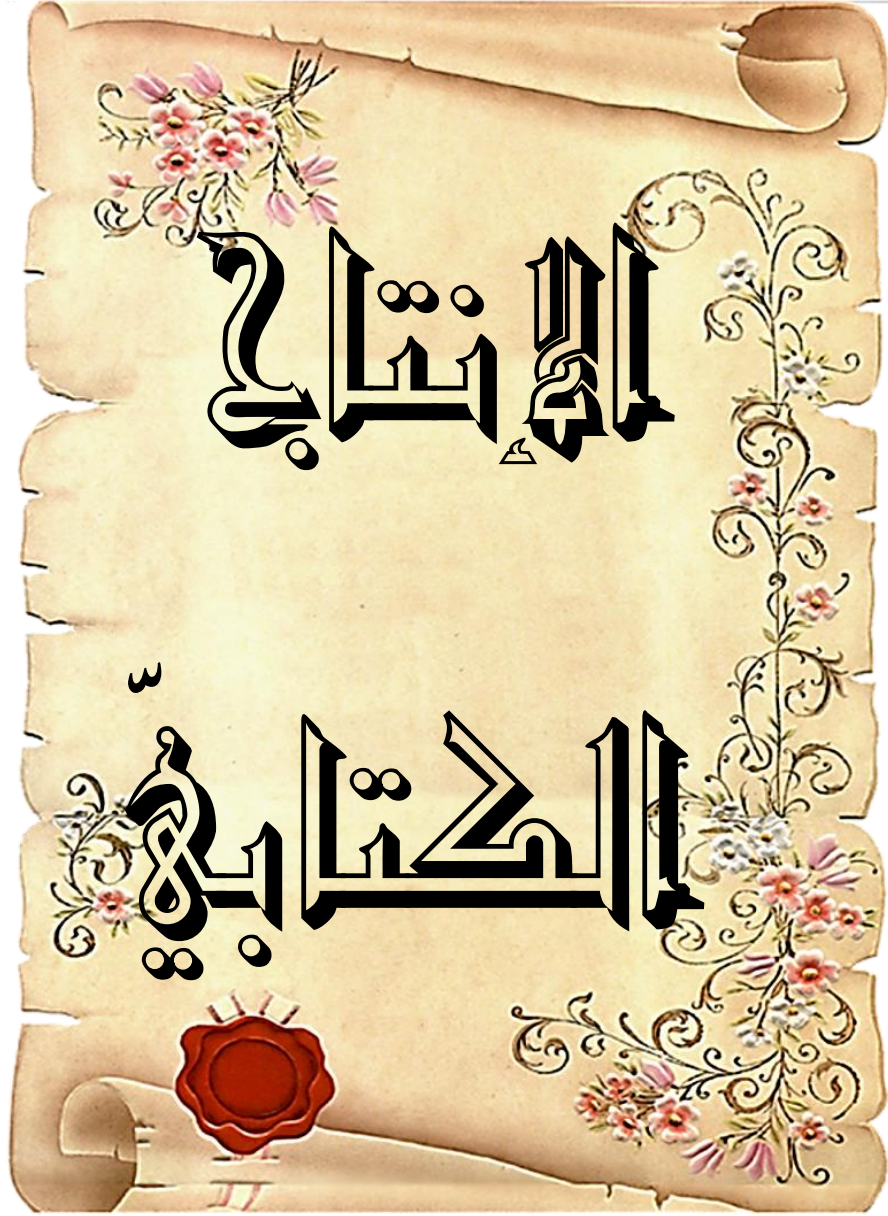 الإنتاج
الكتابيّ